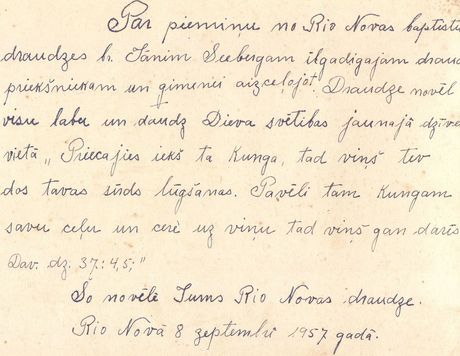 Par piemiņu no Rio Novas baptistu
draudzes br. Jānim Seebergam ilgadigajam draud
priekšniekam un ģimenei aizceļojot. Draudze novēl
visu labu un daudz Dieva svētibas jaunajā dzīve
vietā „Priecajies iekš ta Kunga, tad viņš tev
dos tavas sirds lūgšanas. Pavēli tam Kungam
savu ceļu un cerē uz viņu tad viņš gan darīs
Dav. dz. 37: 4,5;"
Šo novēlē Jums Rio Novas draudze.
Rio Novā 8 zeptembrī 1957 gadā.